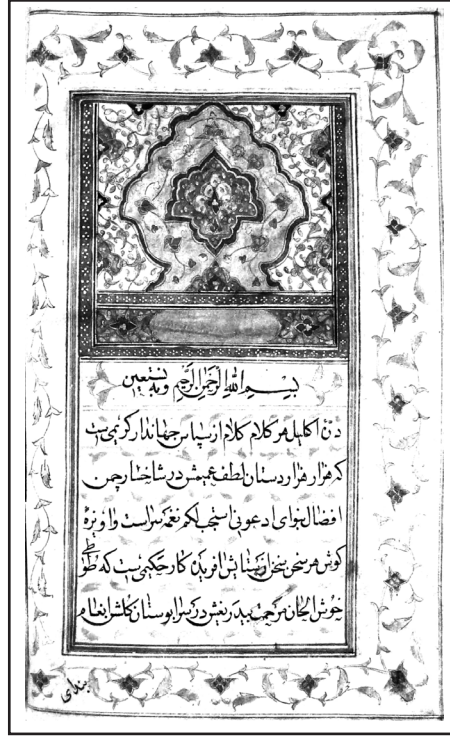 بسم الله الرحمن الرحیم وبه نستعین
درة اکلیل هر کلام کلام از سپاس جهاندار کریمی ست
که هزار هزار دستان لطف عمیمش در شاخسار چمن
افضال بنوای ادعونی استجب لکم نغمه سراست و اویزهٔ
کوش هر سخن سخن از ستایش افریدن کار حکیمی ست که طوطی
خوش الحان مرحمت بیدریغش در بوستان کلشن انعام
بندای